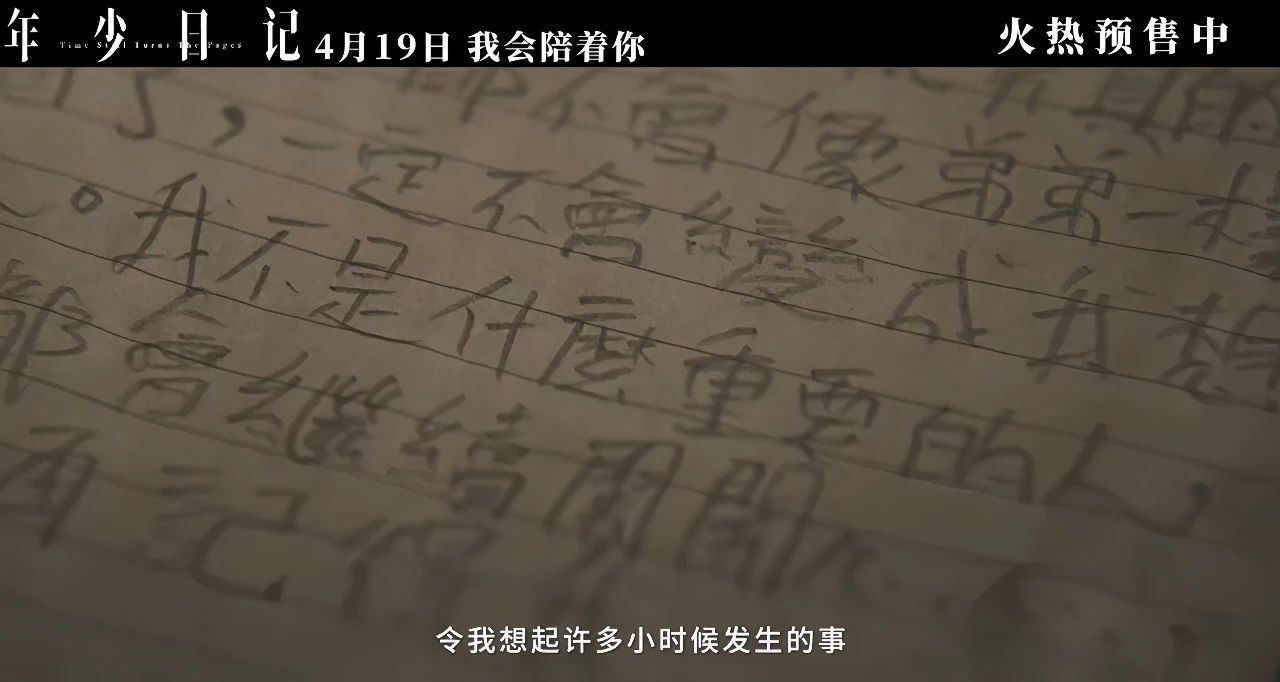 年少日记
Time Still Turns The Pages
4月19日 我会陪着你
火热预售中
都不會像弟弟一樣
了，一定不會變成我想
。我不是什麼重要的人，
都會繼續開開
再記得
令我想起许多小时候发生的事